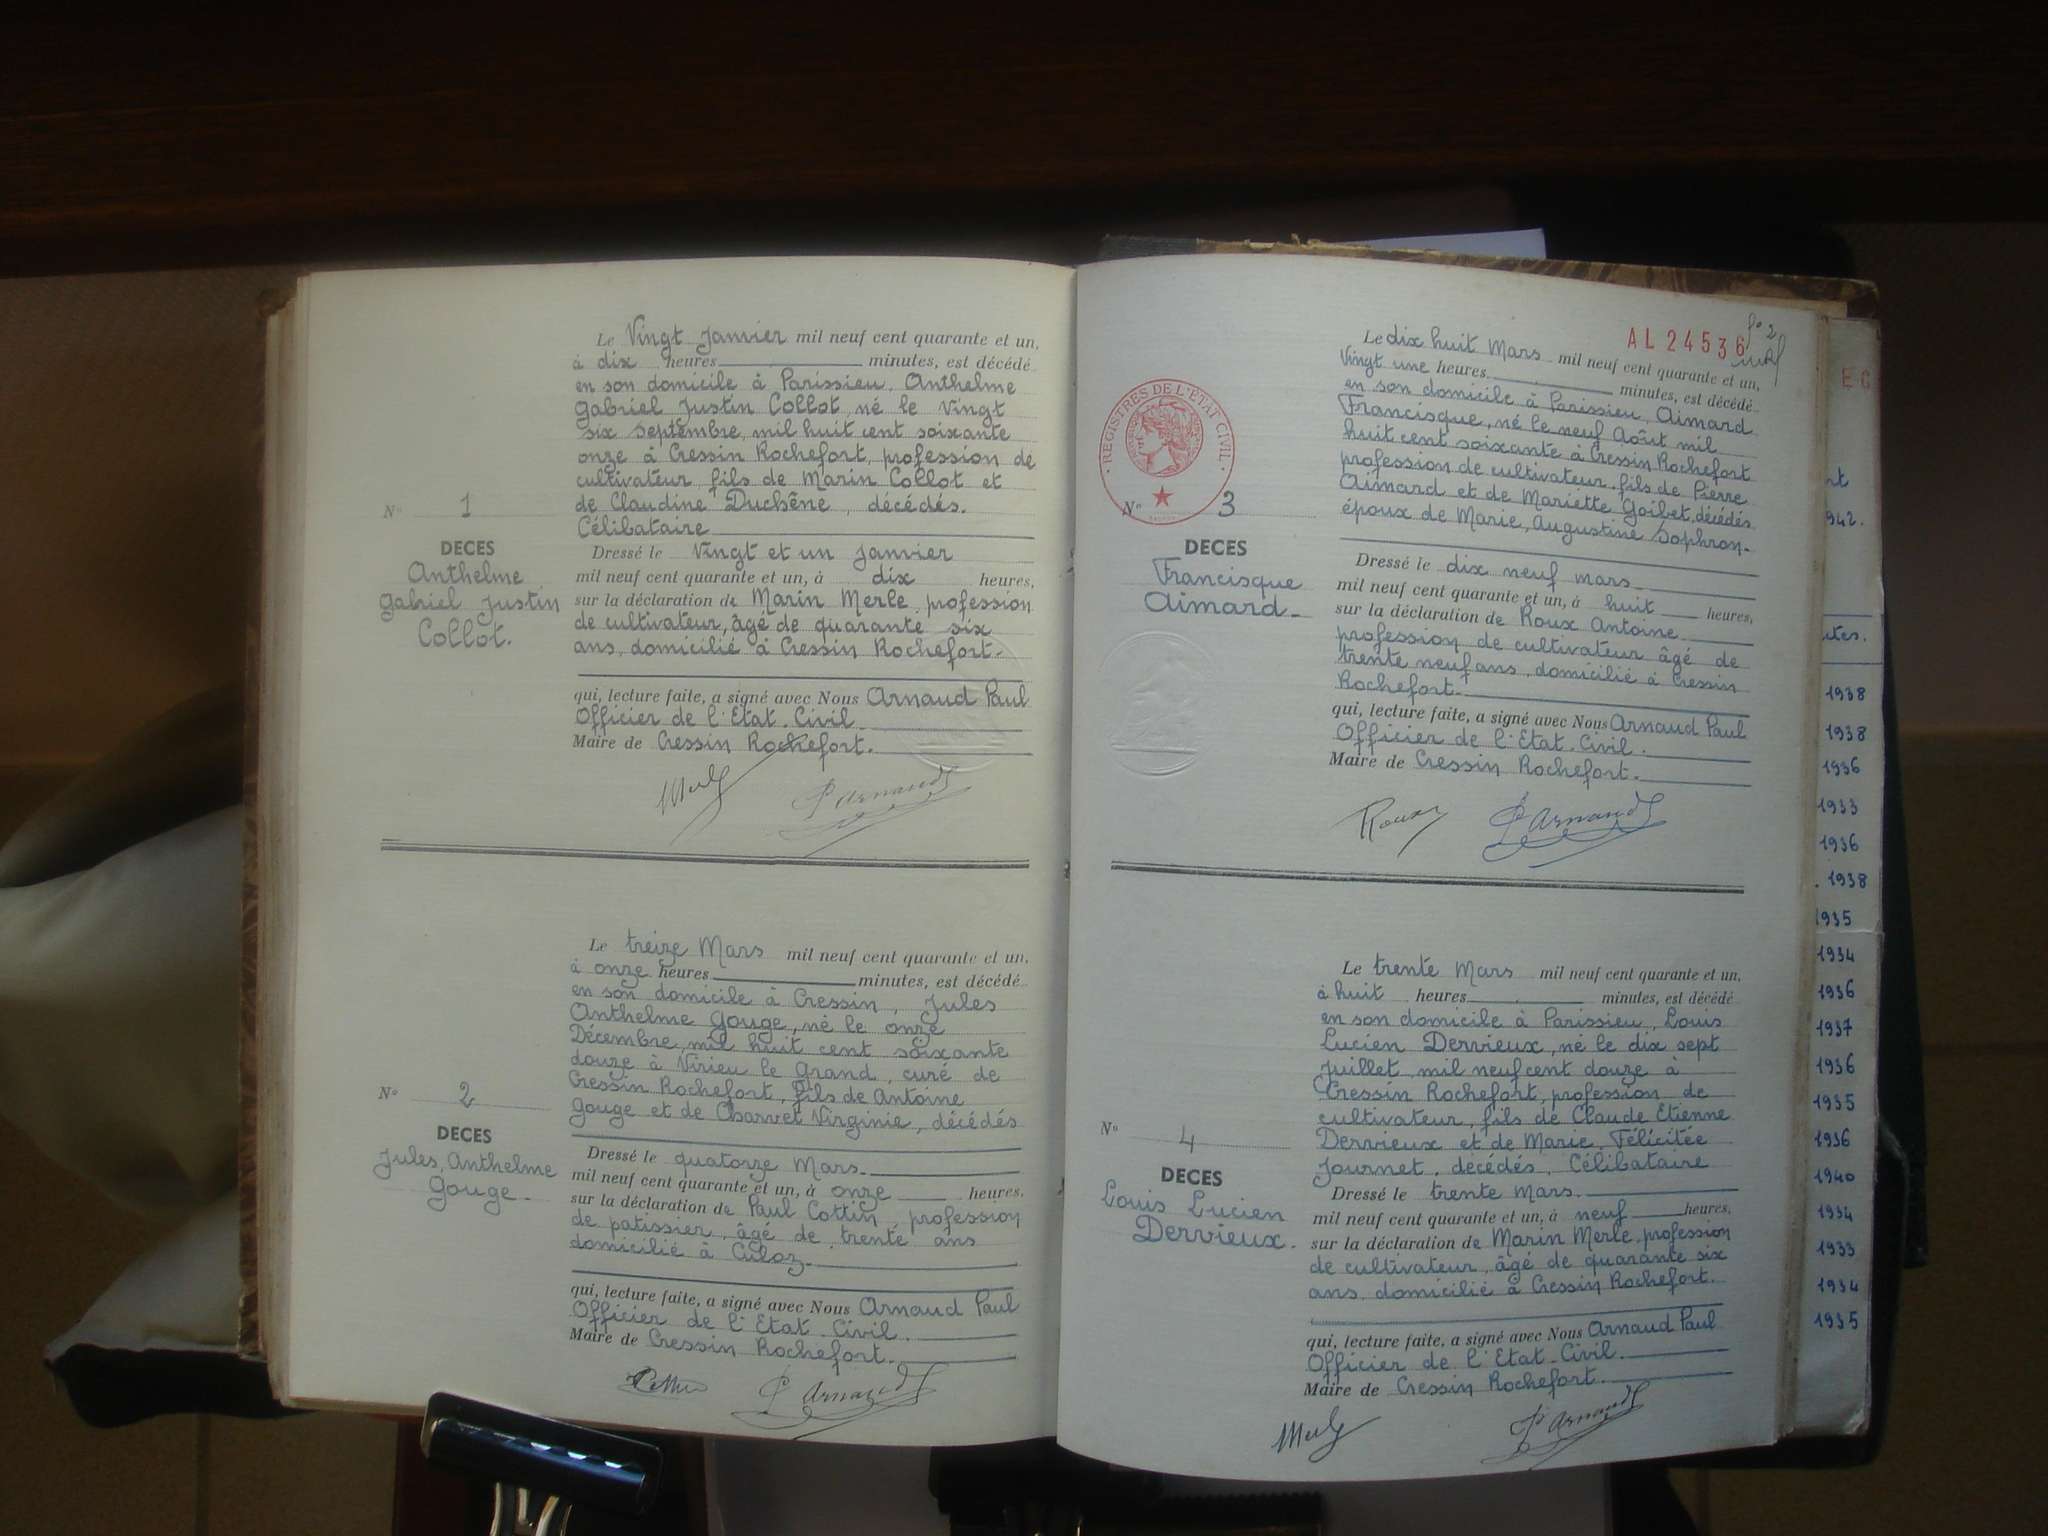 Le Vingt Janvier mil neuf cent quarante et un,
à dix heures minutes, est décédé
en son domicile à Parissieu, Anthelme
Gabriel Justin Collot, né le Vingt
six Septembre, mil huit cent soixante
onze à Cressin Rochefort, profession de
cultivateur, fils de Marin Collot et
de Claudine Duchêne, décédés.
Célibataire
N° 1
DECES
Anthelme
Gabriel Justin
Collot.
Dressé le Vingt et un Janvier
mil neuf cent quarante et un, à dix heures,
sur la déclaration de Marin Merle, profession
de cultivateur, âgé de quarante six
ans, domicilié à Cressin Rochefort.
qui, lecture faite, a signé avec Nous Arnaud Paul
Officier de l'Etat-Civil
Maire de Cressin Rochefort.
Merle P. Arnaud
Le treize Mars mil neuf cent quarante et un,
à onze heures minutes, est décédé
en son domicile à Cressin, Jules
Anthelme Gouge, né le onze
Décembre, mil huit cent soixante
douze à Virieu le Grand, curé de
Cressin Rochefort, fils de Antoine
Gouge et de Charvet Virginie, décédés
N° 2
DECES
Jules, Anthelme
Gouge-
Dressé le quatorze Mars.
mil neuf cent quarante et un, à onze heures,
sur la déclaration de Paul Cottin, profession
de patissier, âgé de trente ans
domicilié à Culoz.
qui, lecture faite, a signé avec Nous Arnaud Paul
Officier de l'Etat-Civil.
Maire de Cressin Rochefort.
P. Arnaud
AL 24536
f° 2
REGISTRES DE L'ÉTAT CIVIL
Le dix huit Mars mil neuf cent quarante et un,
Vingt une heures minutes, est décédé
en son domicile à Parissieu, Aimard
Francisque, né le neuf Août mil
huit cent soixante à Cressin Rochefort
profession de cultivateur, fils de Pierre
Aimard et de Mariette Goibet, décédés
époux de Marie, Augustine Sophron.
N° 3
DECES
Francisque
Aimard-
Dressé le dix neuf mars
mil neuf cent quarante et un, à huit heures,
sur la déclaration de Roux Antoine
profession de cultivateur âgé de
trente neuf ans, domicilié à Cressin
Rochefort.
qui, lecture faite, a signé avec Nous Arnaud Paul
Officier de l'Etat-Civil.
Maire de Cressin Rochefort.
Roux P. Arnaud
Le trente Mars mil neuf cent quarante et un,
à huit heures minutes, est décédé
en son domicile à Parissieu, Louis
Lucien Dervieux, né le dix sept
juillet, mil neuf cent douze à
Cressin Rochefort, profession de
cultivateur, fils de Claude Etienne
Dervieux et de Marie, Félicitée
Journet, décédés. Célibataire
N° 4
DECES
Louis Lucien
Dervieux.
Dressé le trente Mars.
mil neuf cent quarante et un, à neuf heures,
sur la déclaration de Marin Merle, profession
de cultivateur, âgé de quarante six
ans, domicilié à Cressin Rochefort.
qui, lecture faite, a signé avec Nous Arnaud Paul
Officier de l'Etat-Civil.
Maire de Cressin Rochefort.
Merle P. Arnaud
942.
utes.
1938
1938
1936
1933
1936
1938
1935
1934
1936
1937
1936
1935
1936
1940
1934
1933
1934
1935